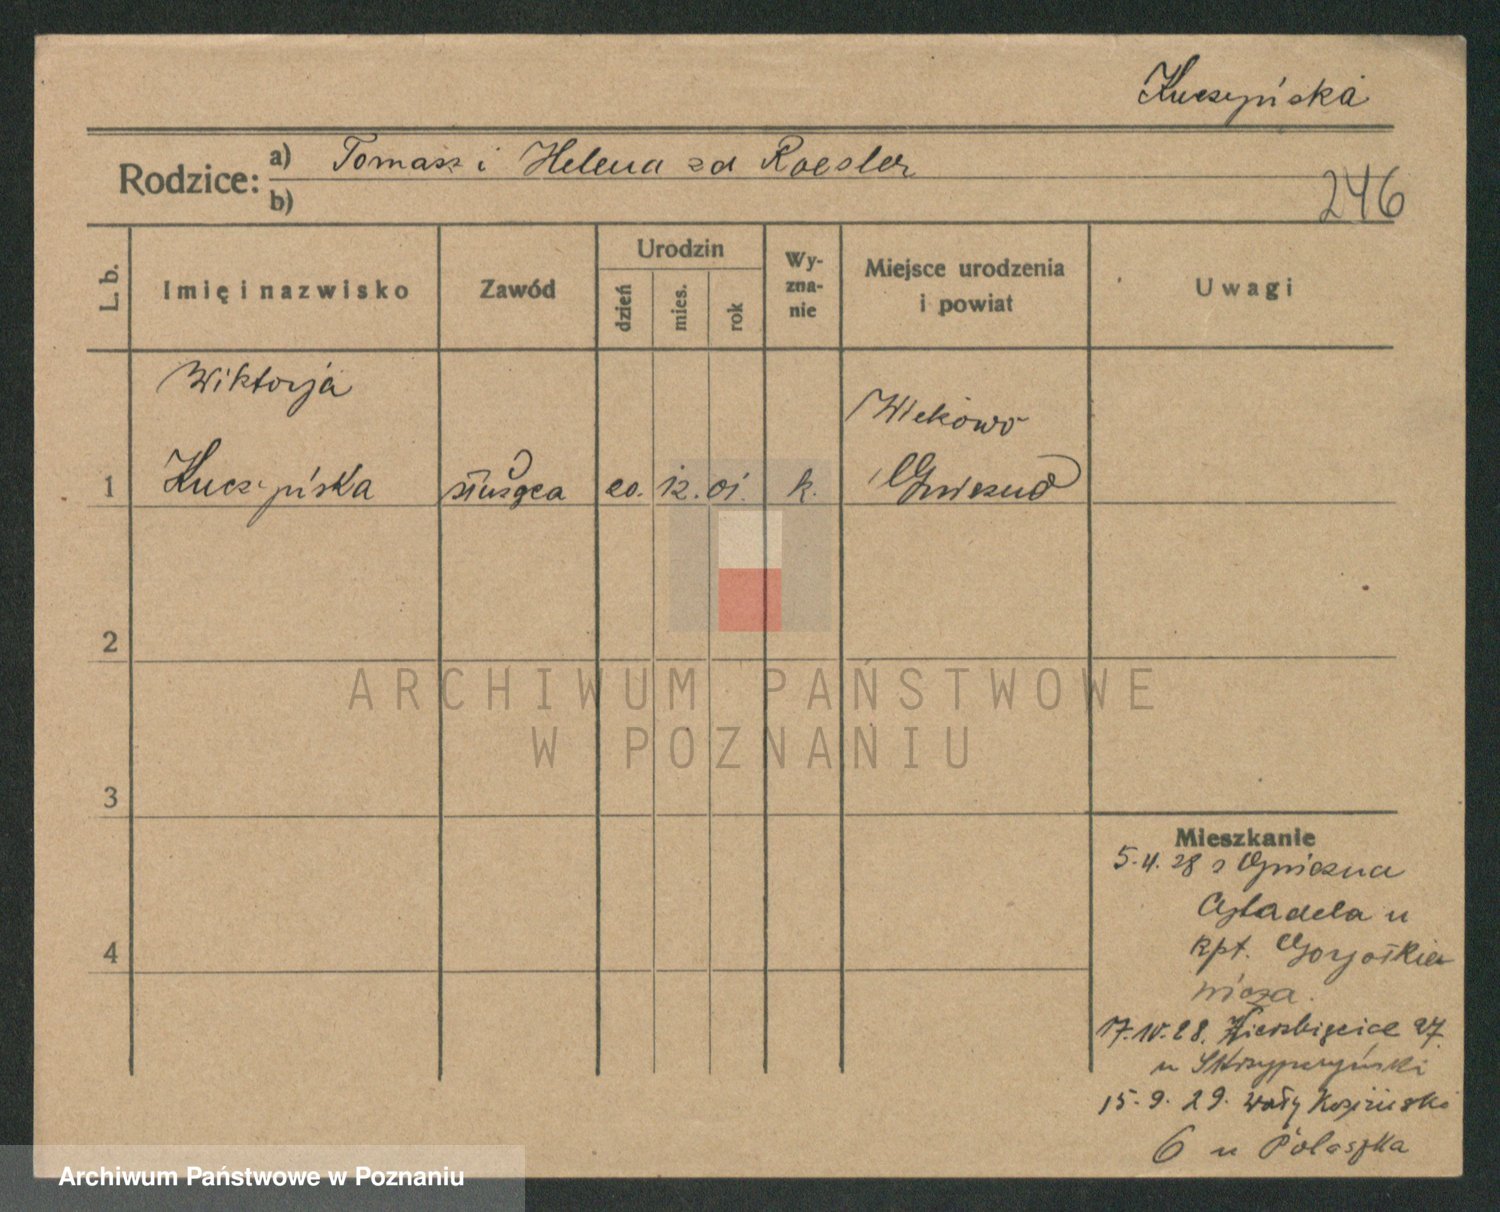 Kuczyńska
Rodzice: a) Tomasz i Helena zd Roesler
b)
246
L. b. Imię i nazwisko Zawód Urodzin dzień mies. rok Wy-zna-nie Miejsce urodzenia i powiat Uwagi
Wiktorja
Wiekowo
1 Kuczyńska służąca 20. 12. 01. k. Gniezno
2
ARCHIWUM PAŃSTWOWE
W POZNANIU
3
Mieszkanie
5.4.28 z Gniezna
Cytadela u
kpt.
wicza.
17.10.28. Wierzbięcice 27.
u Skrzypczyński
4
15.9.29. Wały
6 u Polaszka
Archiwum Państwowe w Poznaniu